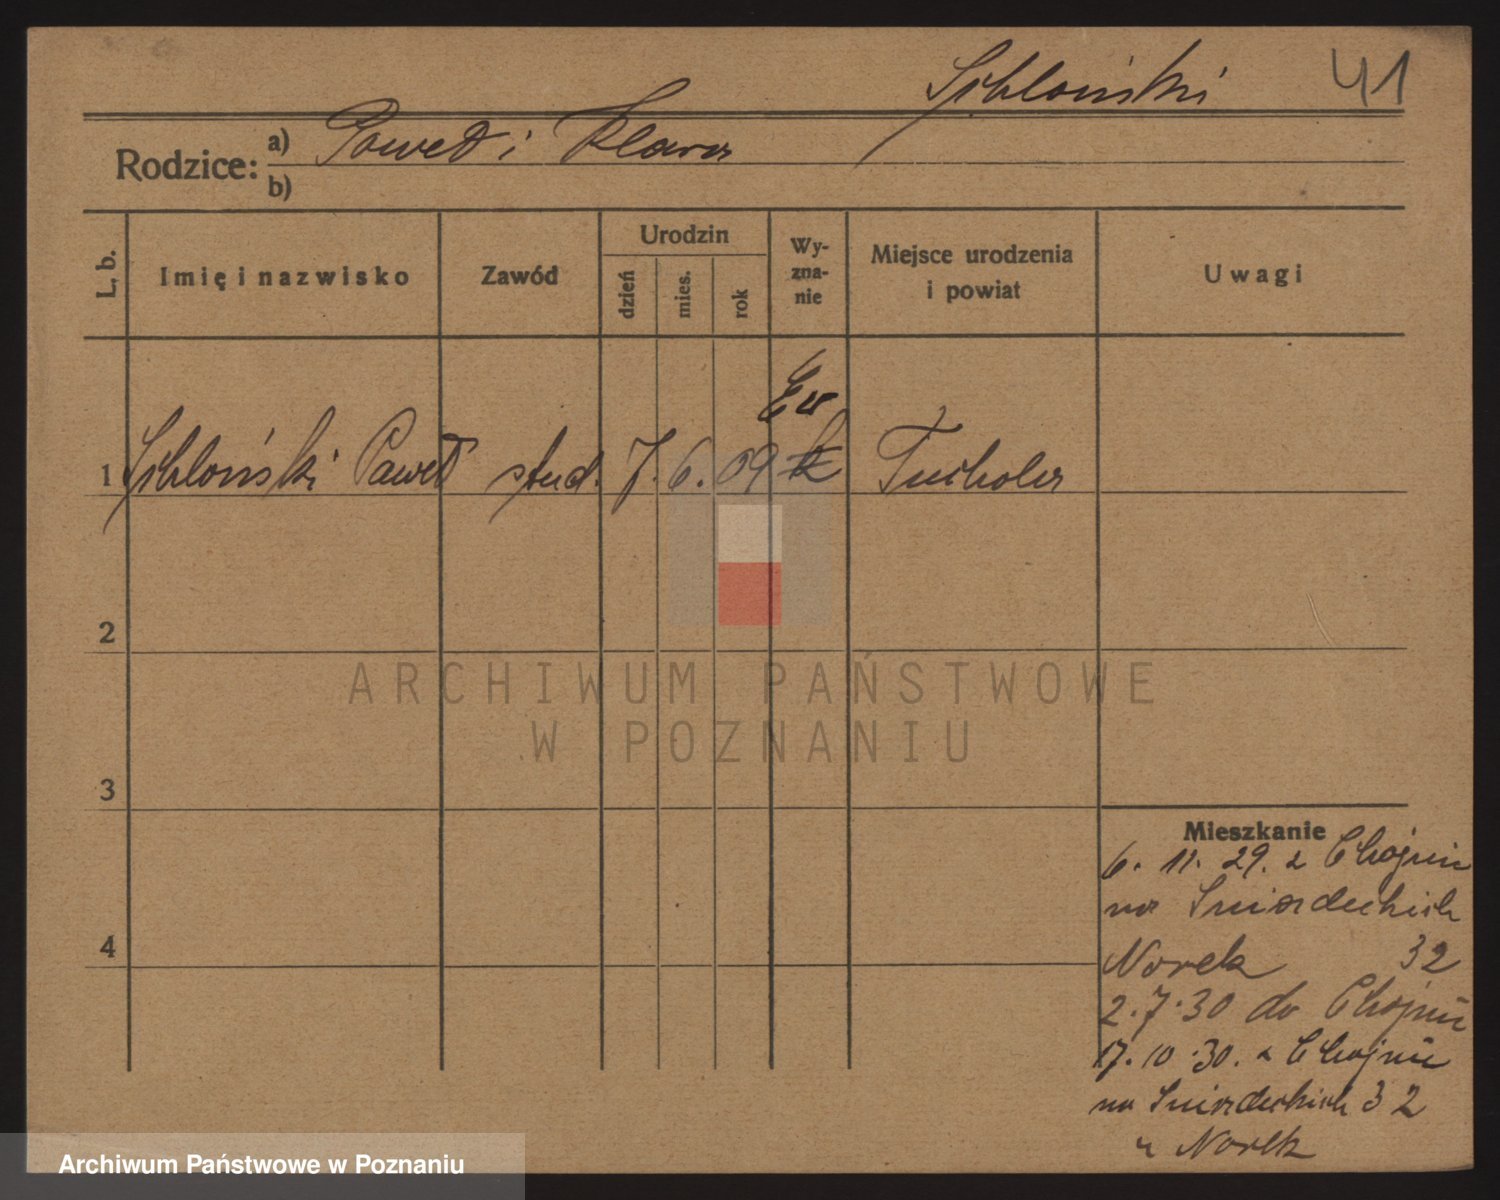 Szkloński 41
Rodzice: a) Paweł i Klara
b)
L. b. Imię i nazwisko Zawód Urodzin dzień mies. rok Wy-zna-nie Miejsce urodzenia i powiat Uwagi
Ew
1 Paweł stud. 7. 6. 09 k Tuchola
2
ARCHIWUM PAŃSTWOWE
W POZNANIU
3
Mieszkanie
6. 11. 29. z Chojnic
na Śniadeckich
4
Norek 32
2.7.30 do Chojnic
17.10.30. z Chojnic
na Śniadeckich 32
u Norek
Archiwum Państwowe w Poznaniu